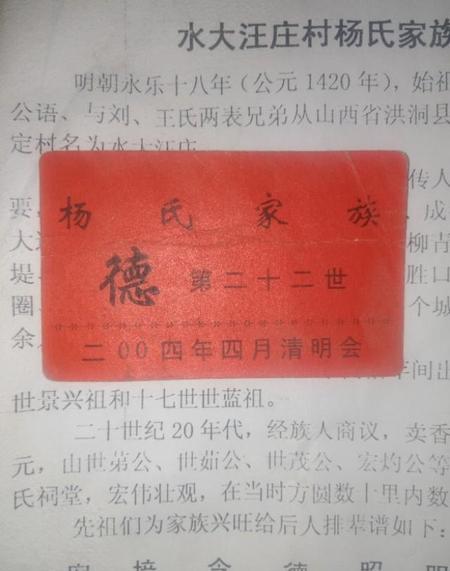 水大汪庄村杨氏家族
明朝永乐十八年（公元1420年），始祖
公语、与刘、王氏两表兄弟从山西省洪洞县
定村名为水大汪庄
传人
要，
杨氏家族
成
大
柳青
德 第二十二世
堤
胜口
圈
个城
余
二00四年四月清明会
年间出
世景兴祖和十七世世蓝祖。
二十世纪20年代，经族人商议，卖香
元，山世弟公、世茹公、世茂公、宏灼公等
氏祠堂，宏伟壮观，在当时方圆数十里内数
先祖们为家族兴旺给后人排辈谱如下：